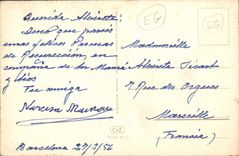 Querida Alicette:
Deseo que paseis
unas felices Pascuas
de Resurrección en
compañia de tu Mamá
y tios
Tu amiga
Narcisa
Barcelona 27/3/56
EG
Mademoiselle
Alicette
7. Rue des Orgues
Marseille
(Francia)